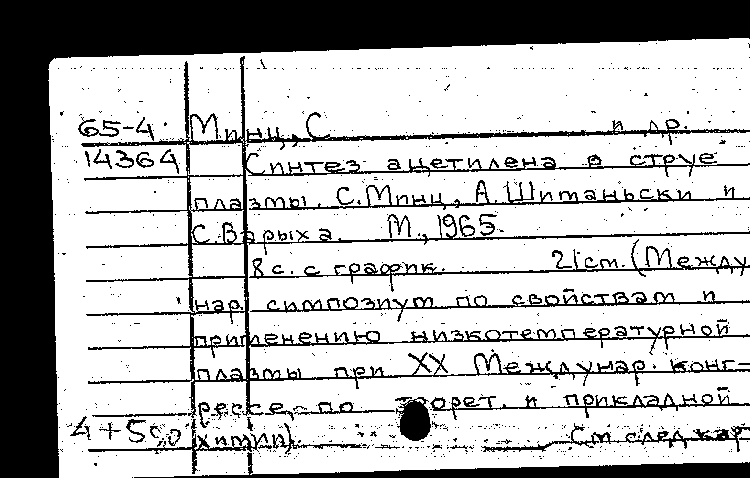 65-4 Минц, С и др.
14364 Синтез ацетилена в струе
плазмы. С. Минц, А. Шитаньски и
С. Варыха. М., 1965.
8 с. с график. 21 cm. (Между
нар. симпозиум по свойствам и
применению низкотемпературной
плазмы при XX Междунар. конг=
рессе по теорет. и прикладной
4+5 химии). См след кар